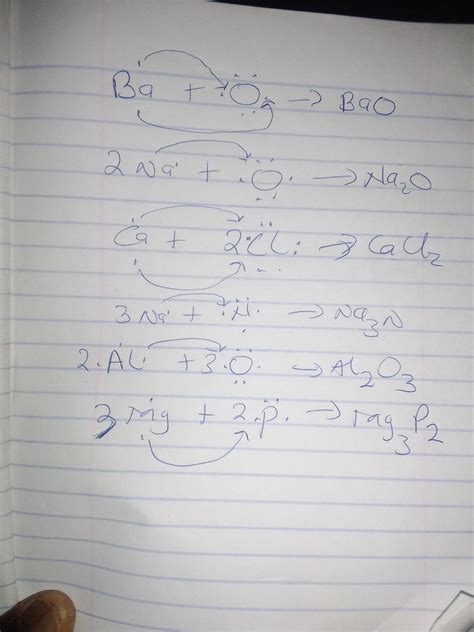 Ba + O → BaO
2Na + O → Na₂O
Ca + 2Cl → CaCl₂
3Na + N → Na₃N
2Al + 3O → Al₂O₃
3Mg + 2P → Mg₃P₂